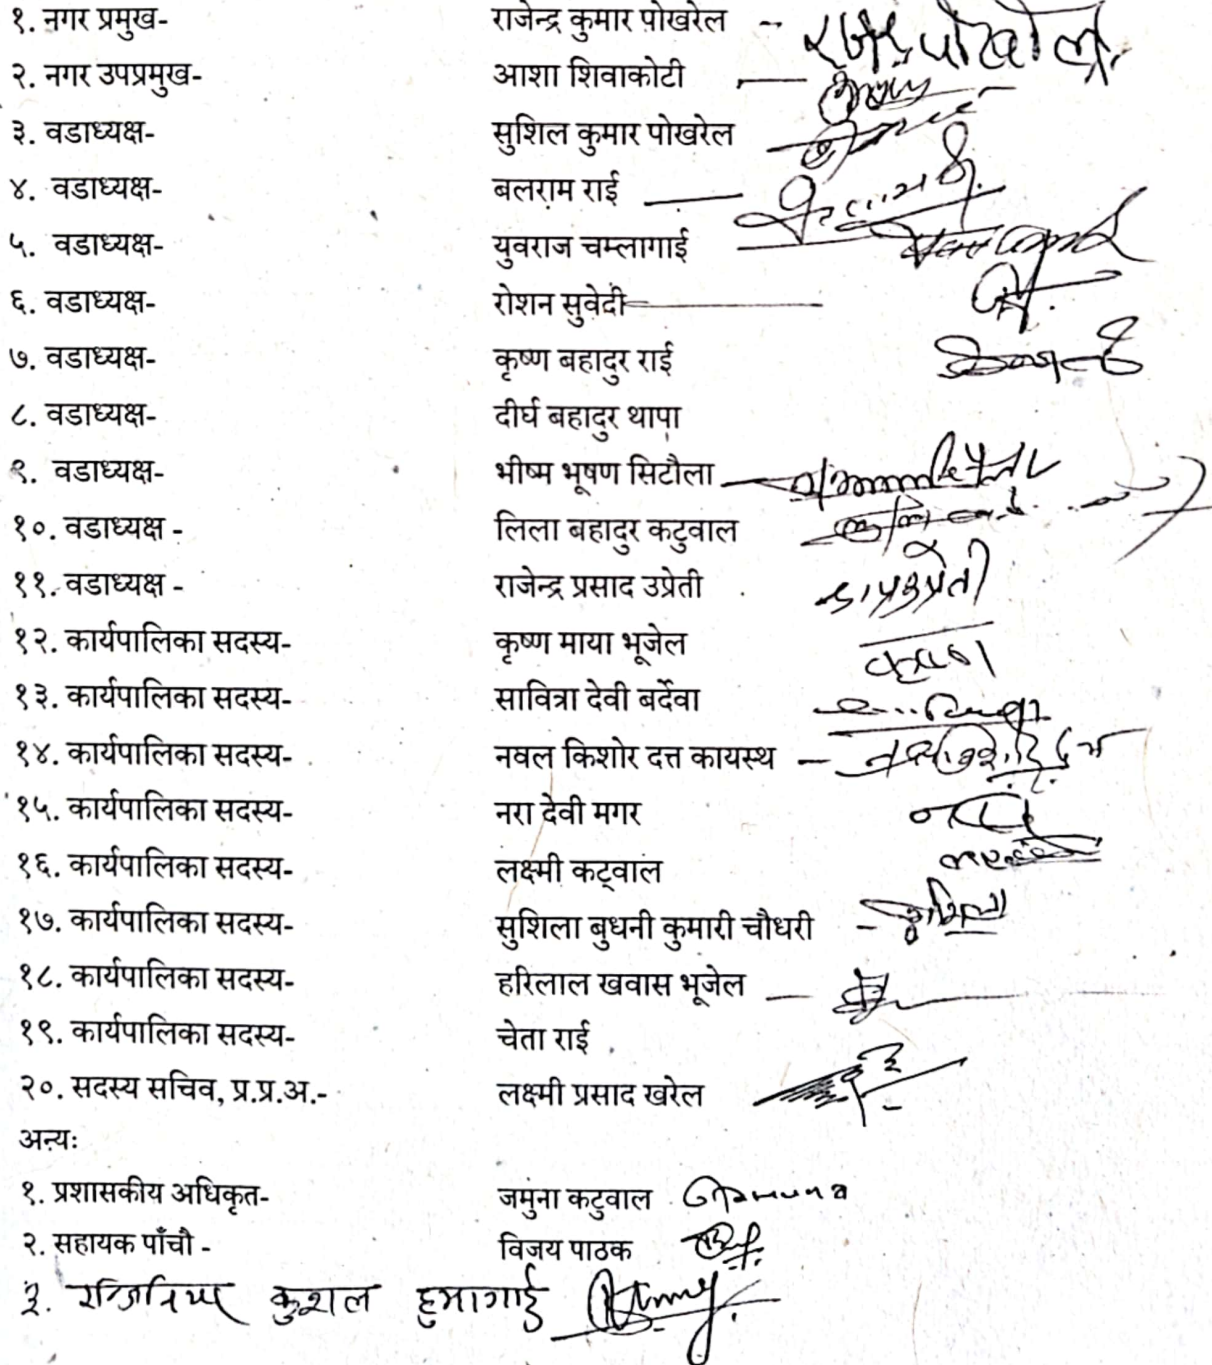 १. नगर प्रमुख- राजेन्द्र कुमार पोखरेल
२. नगर उपप्रमुख- आशा शिवाकोटी
३. वडाध्यक्ष- सुशिल कुमार पोखरेल
४. वडाध्यक्ष- बलराम राई
५. वडाध्यक्ष- युवराज चम्लागाई
६. वडाध्यक्ष- रोशन सुवेदी
७. वडाध्यक्ष- कृष्ण बहादुर राई
८. वडाध्यक्ष- दीर्घ बहादुर थापा
९. वडाध्यक्ष- भीष्म भूषण सिटौला
१०. वडाध्यक्ष - लिला बहादुर कटुवाल
११. वडाध्यक्ष - राजेन्द्र प्रसाद उप्रेती
१२. कार्यपालिका सदस्य- कृष्ण माया भूजेल
१३. कार्यपालिका सदस्य- सावित्रा देवी बर्देवा
१४. कार्यपालिका सदस्य- नवल किशोर दत्त कायस्थ
१५. कार्यपालिका सदस्य- नरा देवी मगर
१६. कार्यपालिका सदस्य- लक्ष्मी कट्वाल
१७. कार्यपालिका सदस्य- सुशिला बुधनी कुमारी चौधरी सुशिला
१८. कार्यपालिका सदस्य- हरिलाल खवास भूजेल
१९. कार्यपालिका सदस्य- चेता राई
२०. सदस्य सचिव, प्र.प्र.अ.- लक्ष्मी प्रसाद खरेल
अन्यः
१. प्रशासकीय अधिकृत- जमुना कटुवाल
२. सहायक पाँचौ - विजय पाठक
३. कुशल हुमागाई